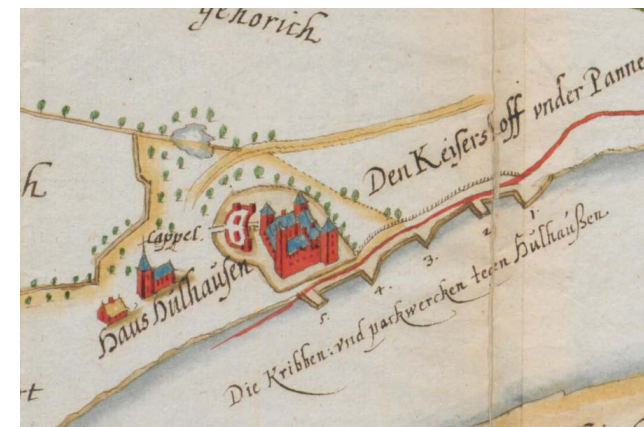 gehorich
Den Keisers hoff vnder Panne
h
Cappel.
Haus Hulhausen
1.
2.
3.
4.
5.
Die Kribben: vnd packwercken teen Hulhaußen.
tt